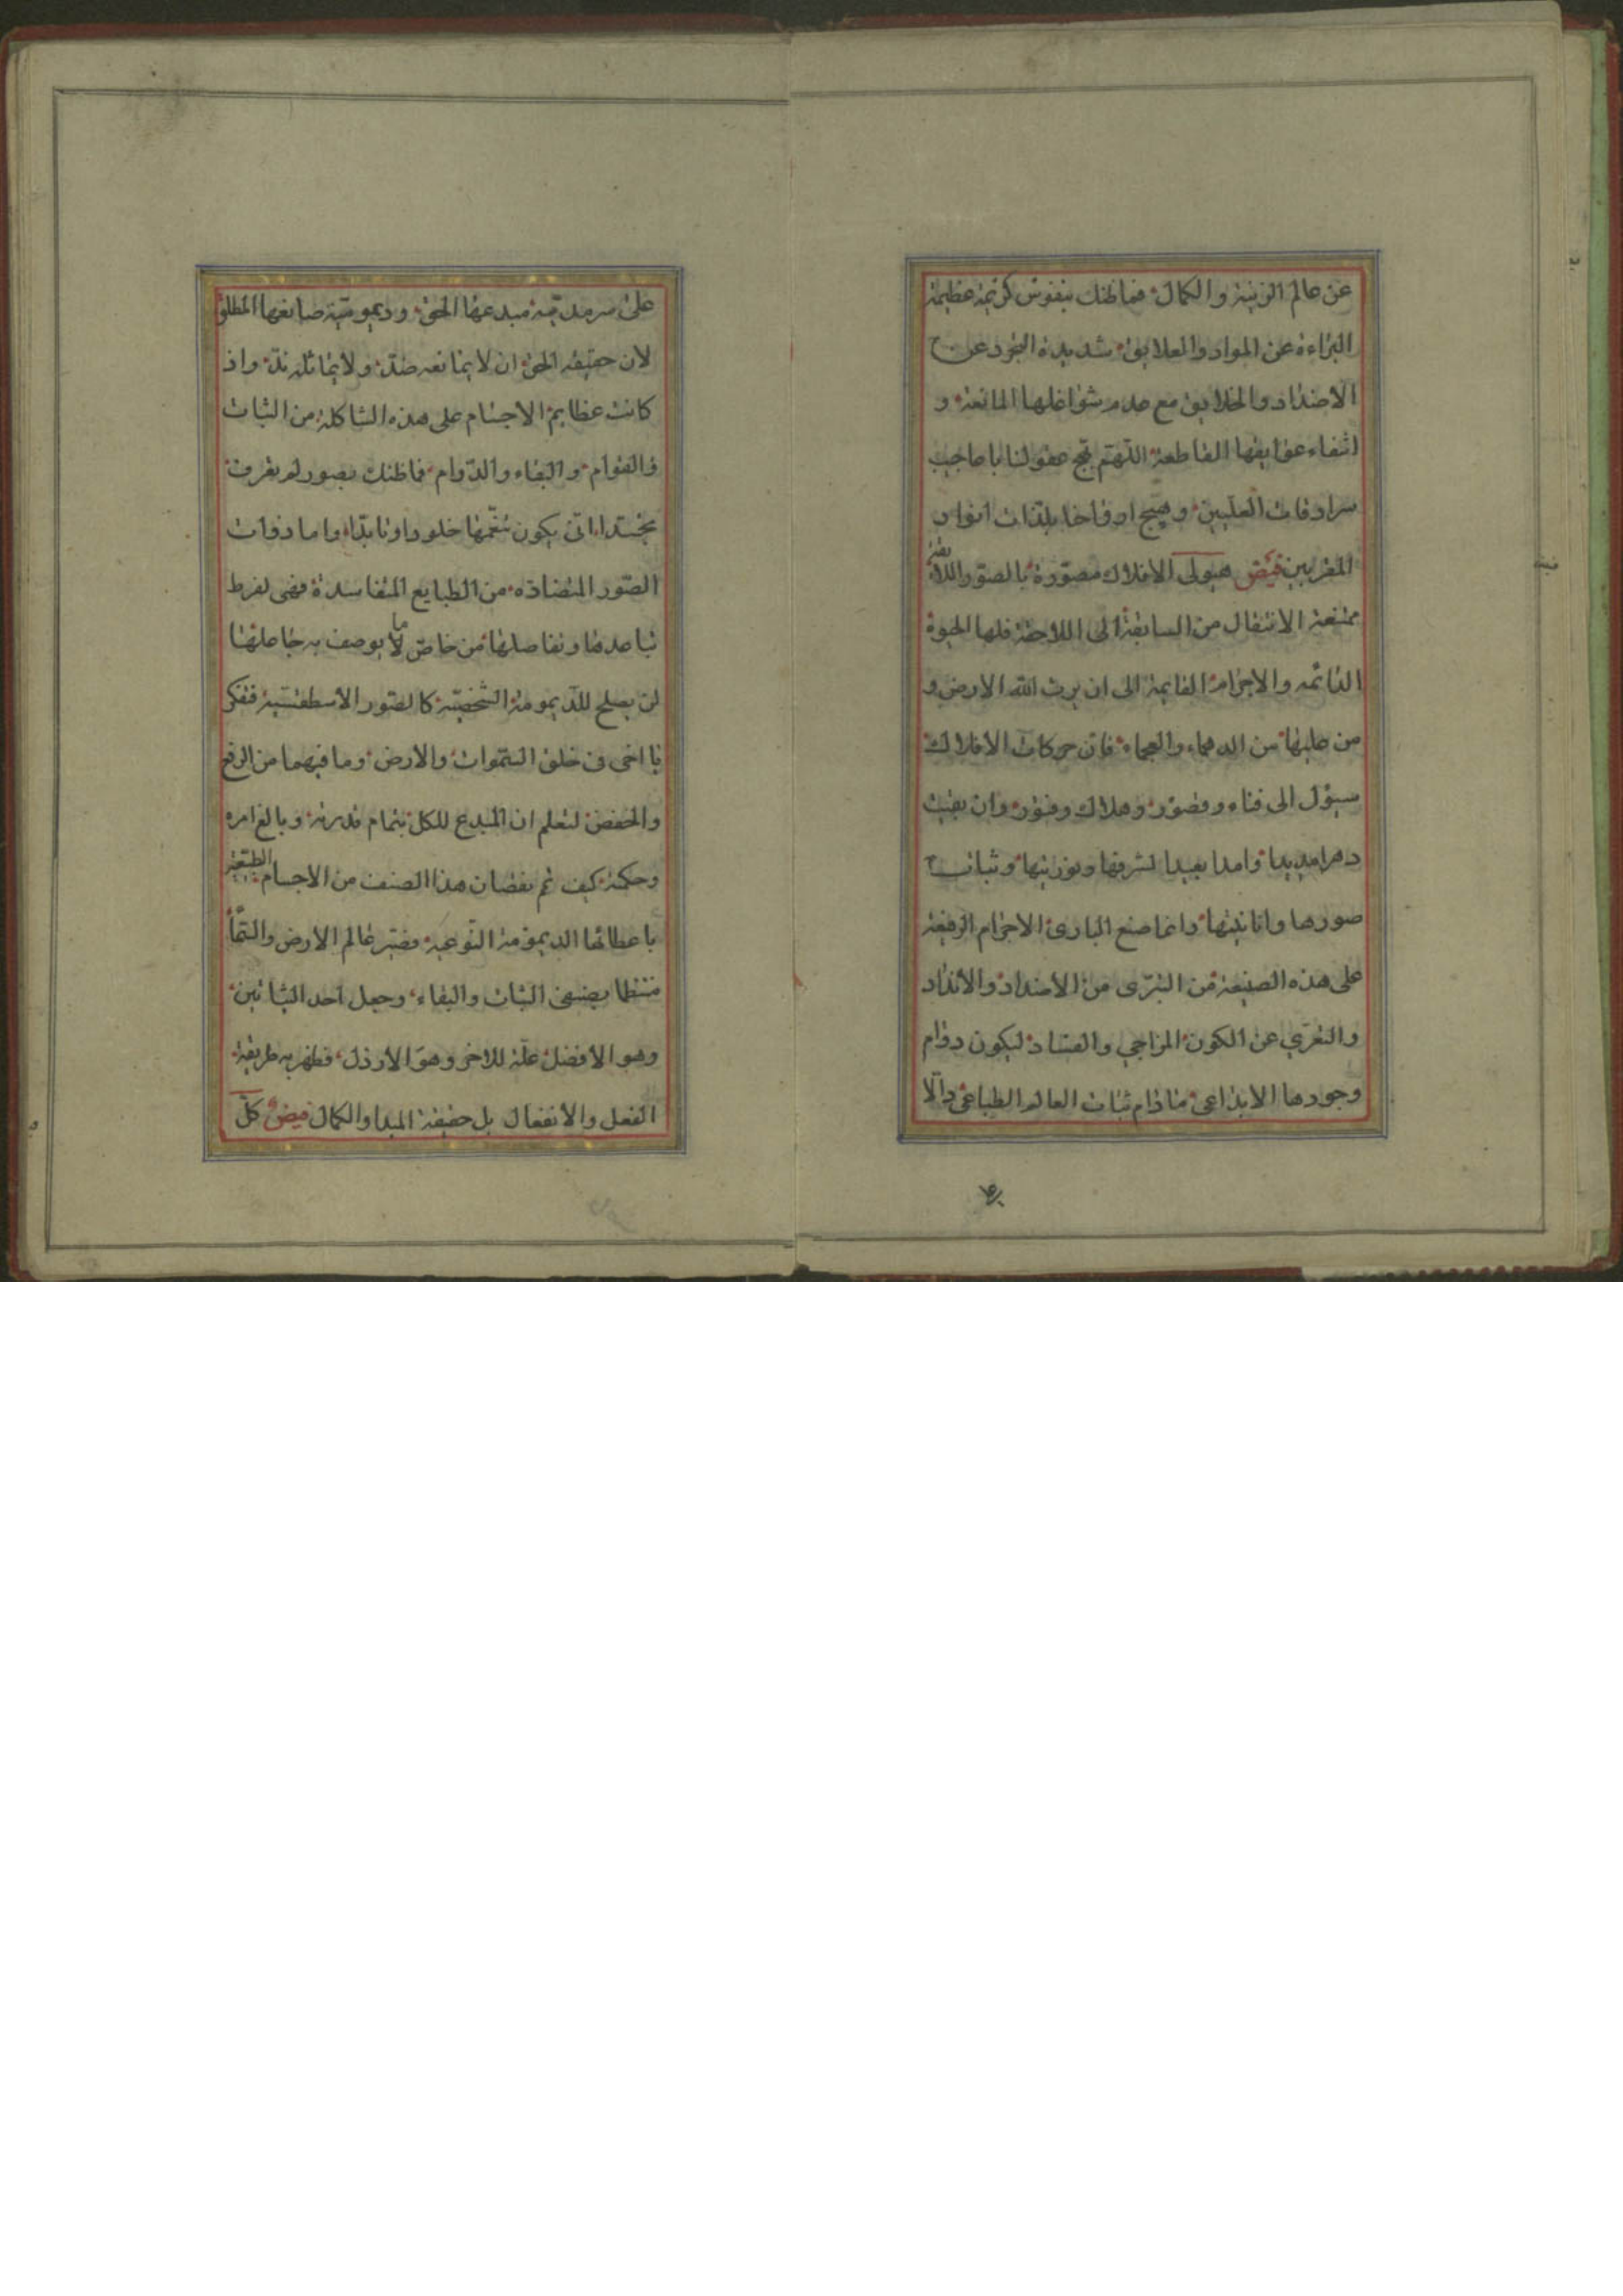 عن عالم الزينة والكمال فما ظنك بنفوس كريمة عظيمة
البراءة عن المواد والعلايق شديدة التجرد عن
الاضداد والخلايق مع عدم شواغلها المانعة و
انتفاء عوايقها القاطعة اللهم عقولنا يا صاحب
سرادقات العليين وهيج ارواحنا بلذات انوار
المقربين فيض هيولى الافلاك مصورة بالصور اللايقة
ممتنعة الانتقال من السابقة الى اللاحقة فلها الحيوة
الدائمه والاجرام القايمة الى ان يرث الله الارض و
من عليها من الدهماء والعجماء فان حركات الافلاك
سيؤل الى فناء وقصور وهلاك وفتور وان بقيت
دهرا مديدا وامدا بعيدا لشرفها ونورنيتها وثبات
صورها وانانيتها وانما صنع البارئ الاجرام الرفيعة
على هذه الصنيعة من التبرى من الاضداد والانداد
والتعري عن الكون المزاجي والفساد ليكون دوام
وجودها الابداعي مادام ثبات العالم الطباعي دالا
على سرمدية مبدعها الحق وديمومية صانعها المطلق
لان حقيقه الحق ان لا يمانعه ضد ولا يماثله ند واذ
كانت عظايم الاجسام على هذه الشاكلة من الثبات
والقوام والبقاء والدوام فما ظنك بصور لم تقرف
بجسد انى يكون تنعمها خلودا وتابدا واما ذوات
الصور المتضاده من الطبايع المتفاسدة فهى لفرط
تباعدها وتفاصلها من خاص ما لا يوصف به جاعلها
لن يصلح للديمومة الشخصية كالصور الاسطقسية ففكر
يا اخى فى خلق السموات والارض وما فيهما من الرفع
والخفض لتعلم ان المبدع للكل بتمام قدرته وبالغ امره
وحكمته كيف تم نقصان هذا الصنف من الاجسام الطبيعية
باعطائها الديمومة النوعية فصير عالم الارض والسماء
منتظما بصنفى الثبات والبقاء وجعل احد الثباتين
وهو الافضل علة للاخر وهو الارذل فظهر به طريقة
الفعل والانفعال بل حقيقة المبدا والكمال فيض كل